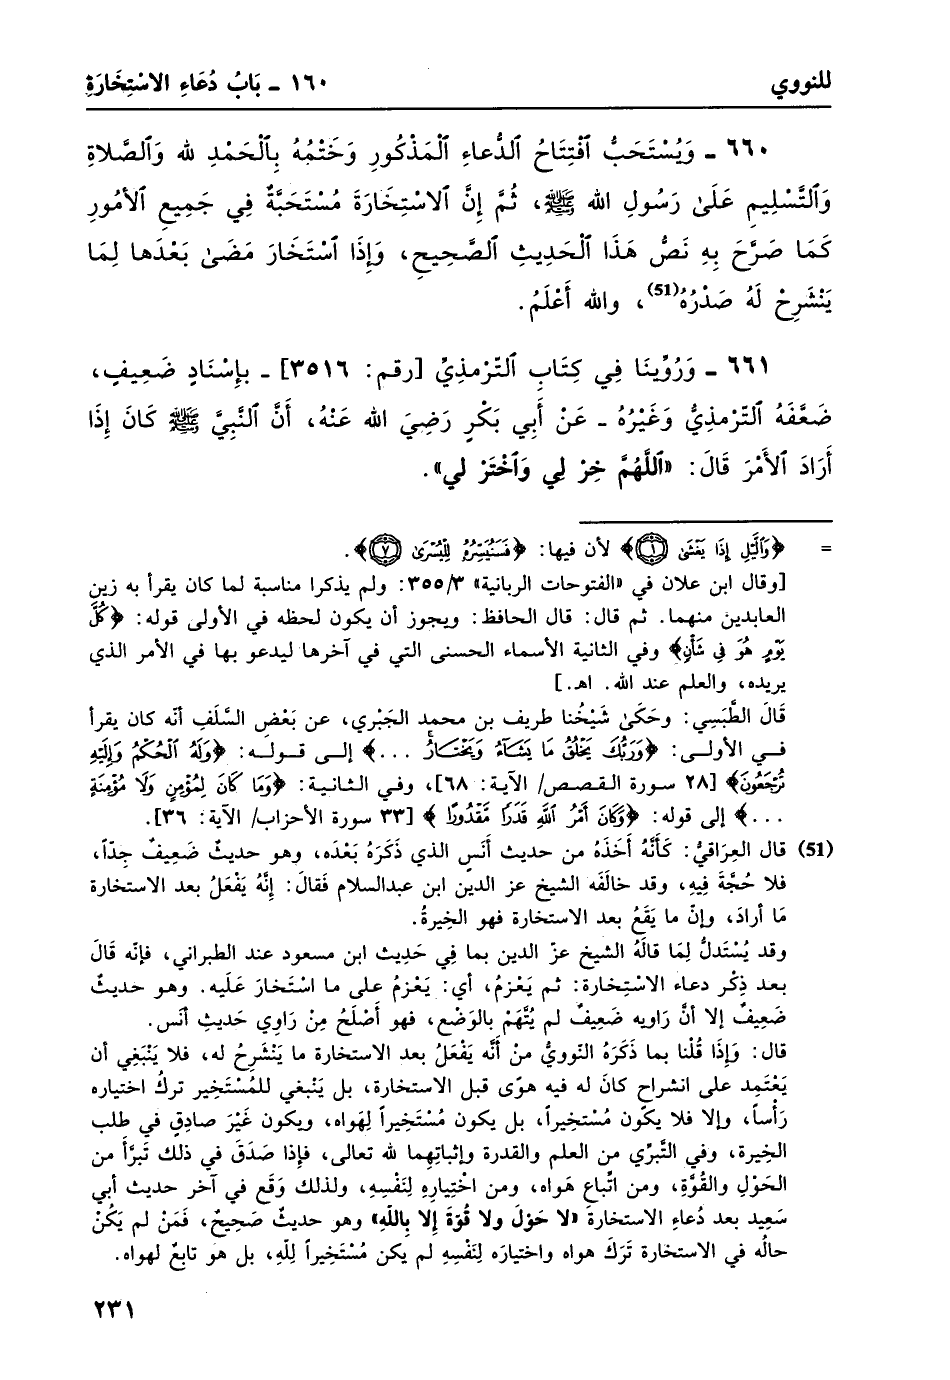 للنووي ١٦٠ ـ بَابُ دُعَاءِ الاسْتِخَارَةِ
٦٦٠ ـ وَيُسْتَحَبُّ ٱفْتِتَاحُ ٱلدُّعاءِ ٱلْمَذْكُورِ وَخَتْمُهُ بِٱلْحَمْدِ لله وَٱلصَّلاةِ
وَٱلتَّسْلِيمِ عَلَىٰ رَسُولِ الله ﷺ، ثُمَّ إِنَّ ٱلاسْتِخَارَةَ مُسْتَحَبَّةٌ فِي جَمِيعِ ٱلأُمُورِ
كَمَا صَرَّحَ بِهِ نَصُّ هَذَا ٱلْحَدِيثِ ٱلصَّحِيحِ، وَإِذَا ٱسْتَخَارَ مَضَىٰ بَعْدَها لِمَا
يَنْشَرِحُ لَهُ صَدْرُهُ(51)، والله أَعْلَمُ.
٦٦١ ـ وَرُوِّينَا فِي كِتَابِ ٱلتِّرْمذِيِّ [رقم: ٣٥١٦] ـ بِإِسْنَادٍ ضَعِيفٍ،
ضَعَّفَهُ ٱلتِّرْمذِيُّ وَغَيْرُهُ ـ عَنْ أَبِي بَكْرٍ رَضِيَ الله عَنْهُ، أَنَّ ٱلنَّبِيَّ ﷺ كَانَ إِذَا
أَرَادَ ٱلأَمْرَ قَالَ: «ٱللَّهُمَّ خِرْ لِي وَٱخْتَرْ لي».
= ﴿وَٱلَّيْلِ إِذَا يَغْشَىٰ ١﴾ لأن فيها: ﴿فَسَنُيَسِّرُهُۥ لِلْيُسْرَىٰ ٧﴾.
[وقال ابن علان في «الفتوحات الربانية» ٣/ ٣٥٥: ولم يذكرا مناسبة لما كان يقرأ به زين
العابدين منهما. ثم قال: قال الحافظ: ويجوز أن يكون لحظه في الأولى قوله: ﴿كُلَّ
يَوْمٍ هُوَ فِى شَأْنٍ﴾ وفي الثانية الأسماء الحسنى التي في آخرها ليدعو بها في الأمر الذي
يريده، والعلم عند الله. اهـ.]
قَالَ الطَّبَسِي: وحَكَىٰ شَيْخُنا طريف بن محمد الجَبْري، عن بَعْضِ السَّلَفِ أنّه كان يقرأ
فـي الأولـى: ﴿وَرَبُّكَ يَخْلُقُ مَا يَشَآءُ وَيَخْتَارُ ...﴾ إلـى قـولـه: ﴿وَلَهُ ٱلْحُكْمُ وَإِلَيْهِ
تُرْجَعُونَ﴾ [٢٨ سورة القصص/ الآية: ٦٨]، وفي الثانية: ﴿وَمَا كَانَ لِمُؤْمِنٍ وَلَا مُؤْمِنَةٍ
...﴾ إلى قوله: ﴿وَكَانَ أَمْرُ ٱللَّهِ قَدَرًا مَّقْدُورًا﴾ [٣٣ سورة الأحزاب/ الآية: ٣٦].
(51) قال العِرَاقيُّ: كَأَنَّهُ أَخَذَهُ من حديث أنَسٍ الذي ذَكَرَهُ بَعْدَه، وهو حديثٌ ضَعِيفٌ جِدّاً،
فلا حُجَّةَ فِيهِ، وقد خالَفَه الشيخ عز الدين ابن عبدالسلام فَقالَ: إِنَّهُ يَفْعَلُ بعد الاستخارة
مَا أرادَ، وإنّ ما يَقَعُ بعد الاستخارة فهو الخِيرةُ.
وقد يُسْتَدلُّ لِمَا قالَهُ الشيخ عزّ الدين بما فِي حَدِيث ابن مسعود عند الطبراني، فإنّه قَالَ
بـعـد ذِكْر دعاء الاسْتِخارة: ثم يَعْزِمُ، أي: يَعْزِمُ على ما اسْتَخارَ عَلَيه. وهو حديثٌ
ضَعِيفٌ إلا أنَّ رَاويه ضَعيفٌ لم يُتَّهَمْ بِالوَضْعِ، فهو أصْلَحُ مِنْ رَاوِي حَديثِ أنَس.
قال: وَإِذَا قُلْنا بما ذَكَرَهُ النّوويُّ مَنْ أَنَّه يَفْعَلُ بعد الاستخارة ما يَنْشَرِحُ له، فلا يَنْبَغِي أن
يَعْتَمِد على انشراحٍ كانَ له فيه هوًى قبل الاستخارة، بل يَنْبغي للمُسْتَخِير تركُ اختياره
رَأساً، وإلا فلا يكُون مُسْتخيراً، بل يكون مُسْتَخيراً لِهَواه، ويكون غَيْرَ صادِقٍ في طلب
الخِيرة، وفي التَّبرِّي من العلم والقدرة وإثباتِهِما لله تعالى، فإذا صَدَقَ في ذلك تَبرَّأَ من
الحَوْلِ والقُوَّةِ، ومن اتّباع هَواه، ومن اخْتِيارِهِ لِنَفْسِهِ، ولذلك وَقَع في آخر حديث أبي
سَعِيد بعد دُعاءِ الاستخارة «لا حَوْلَ ولا قُوّةَ إلا بِاللّهِ» وهو حديثٌ صَحِيحٌ، فَمَنْ لم يَكُنْ
حالُه في الاستخارة تَرَكَ هواه واختيارَه لِنَفْسِهِ لم يكن مُسْتَخِيراً لِلّهِ، بل هو تابعٌ لهواه.
٢٣١